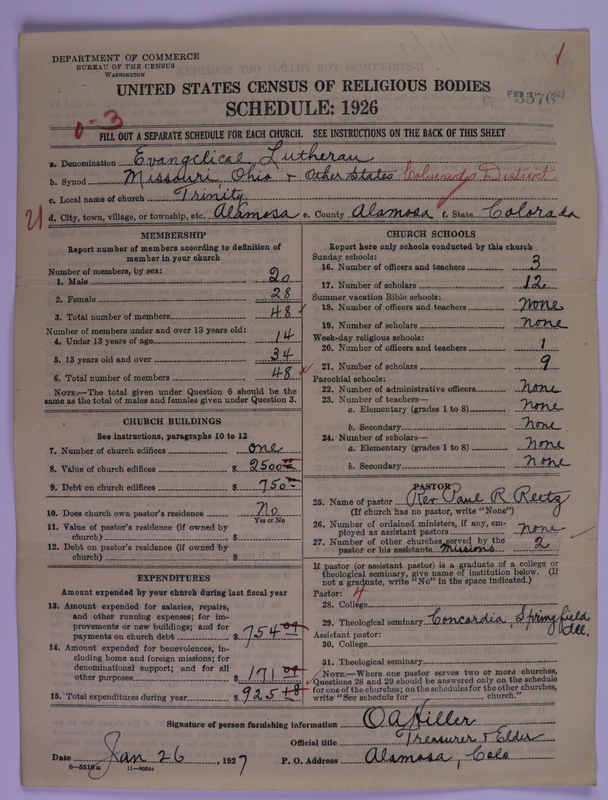 DEPARTMENT OF COMMERCE
BUREAU OF THE CENSUS
WASHINGTON
UNITED STATES CENSUS OF RELIGIOUS BODIES
SCHEDULE: 1926
3576
0-3
FILL OUT A SEPARATE SCHEDULE FOR EACH CHURCH. SEE INSTRUCTIONS ON THE BACK OF THIS SHEET
a. Denomination Evangelical Lutheran
b. Synod Missouri, Ohio & Other States Colorado District
c. Local name of church Trinity
21
d. City, town, village, or township, etc. Alamosa e. County Alamosa f. State Colorado
MEMBERSHIP
Report number of members according to definition of
member in your church
Number of members, by sex:
1. Male 20
2. Female 28
3. Total number of members 48
Number of members under and over 13 years old:
4. Under 13 years of age 14
5. 13 years old and over 34
6. Total number of members 48
NOTE.—The total given under Question 6 should be the
same as the total of males and females given under Question 3.
CHURCH BUILDINGS
See instructions, paragraphs 10 to 12
7. Number of church edifices one
8. Value of church edifices $ 2500
9. Debt on church edifices $ 750
10. Does church own pastor's residence No
Yes or No
11. Value of pastor's residence (if owned by
church) $
12. Debt on pastor's residence (if owned by
church) $
EXPENDITURES
Amount expended by your church during last fiscal year
13. Amount expended for salaries, repairs,
and other running expenses; for im-
provements or new buildings; and for
payments on church debt $ 754
14. Amount expended for benevolences, in-
cluding home and foreign missions; for
denominational support; and for all
other purposes $ 171
15. Total expenditures during year $ 925
CHURCH SCHOOLS
Report here only schools conducted by this church
Sunday schools:
16. Number of officers and teachers 3
17. Number of scholars 12
Summer vacation Bible schools:
18. Number of officers and teachers None
19. Number of scholars None
Week-day religious schools:
20. Number of officers and teachers 1
21. Number of scholars 9
Parochial schools:
22. Number of administrative officers None
23. Number of teachers—
a. Elementary (grades 1 to 8) None
b. Secondary None
24. Number of scholars—
a. Elementary (grades 1 to 8) None
b. Secondary None
PASTOR
25. Name of pastor Rev Paul R Reetz
(If church has no pastor, write "None")
26. Number of ordained ministers, if any, em-
ployed as assistant pastors None
27. Number of other churches served by the
pastor or his assistants Missions 2
If pastor (or assistant pastor) is a graduate of a college or
theological seminary, give name of institution below. (If
not a graduate, write "No" in the space indicated.)
Pastor: 4
28. College
29. Theological seminary Concordia, Springfield
Ill.
Assistant pastor:
30. College
31. Theological seminary
NOTE.—Where one pastor serves two or more churches,
Questions 28 and 29 should be answered only on the schedule
for one of the churches; on the schedules for the other churches,
write "See schedule for church."
Signature of person furnishing information O A Hiller
Official title Treasurer & Elder
Date Jan 26, 1927 P. O. Address Alamosa, Colo
8-5518a 11-9034